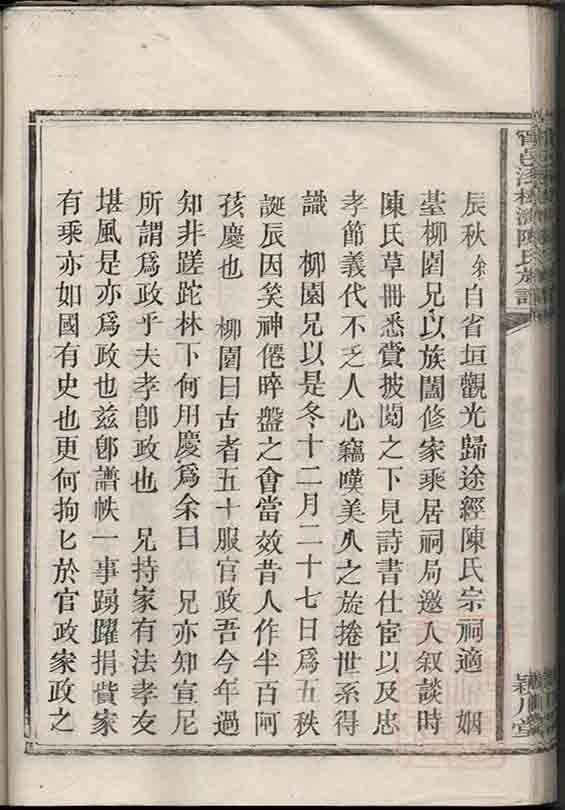 辰秋余自省垣觀光歸途經陳氏宗祠適　姻
臺柳園兄以族闔修家乘居祠局邀入叙談時
陳氏草冊悉賷披閱之下見詩書仕宦以及忠
孝節義代不乏人心竊嘆美久之旋捲世系得
識　柳園兄以是冬十二月二十七日爲五秩
誕辰因笑神僊晬盤之會當效昔人作半百阿
孩慶也　柳園曰古者五十服官政吾今年過
知非蹉跎林下何用慶爲余曰　兄亦知宣尼
所謂爲政乎夫孝卽政也　兄持家有法孝友
堪風是亦爲政也兹卽譜帙一事踴躍捐費家
有乘亦如國有史也更何拘匕於官政家政之
陳氏族譜
潁川堂